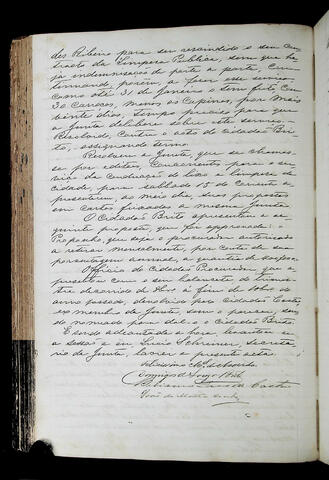 des Ribeiro para ser rescindido o seu con
tracto da Limpeza Publica, sem que ha
ja indemnisação de parte a parte, Con
tinuando, porém, a fazer esse serviço
como até 31 de Janeiro o tem feito, com
30 carroças, menos as Capinas, por mais
vinte dias, tempo preciso para que
a Junta delibere sobre este serviço.
Resolvido, contra o acto do Cidadão Bri
to, assignando termo.
Resolveu a Junta, que se chamas
se por editaes, Concurrentes para o ser
viço da conducção do lixo e limpeza da
cidade, para sabbado 15 do Corrente a
presentarem, ao meio dia, suas propostas
em cartas fixadas a mesma Junta.
O Cidadão Brito apresentou a se
guinte proposta, que foi approvada:
Proponho que seja o procurador autorisado
a retirar mensalmente, por conta de sua
porcentagem annual, a quantia de
Officio do Cidadão Procurador que a
presentou com o seu balancete do trimes
tre decorrido de a fim de
anno passado, devolvido pelo Cidadão Costa,
ex membro da Junta, sem o parecer, sen
do nomeado para dal-o o Cidadão Brito.
E sendo adiantada a hora levantou-se
a sessão e eu, Lucio Schreiner, secreta
rio da Junta, lavrei a presente acta.